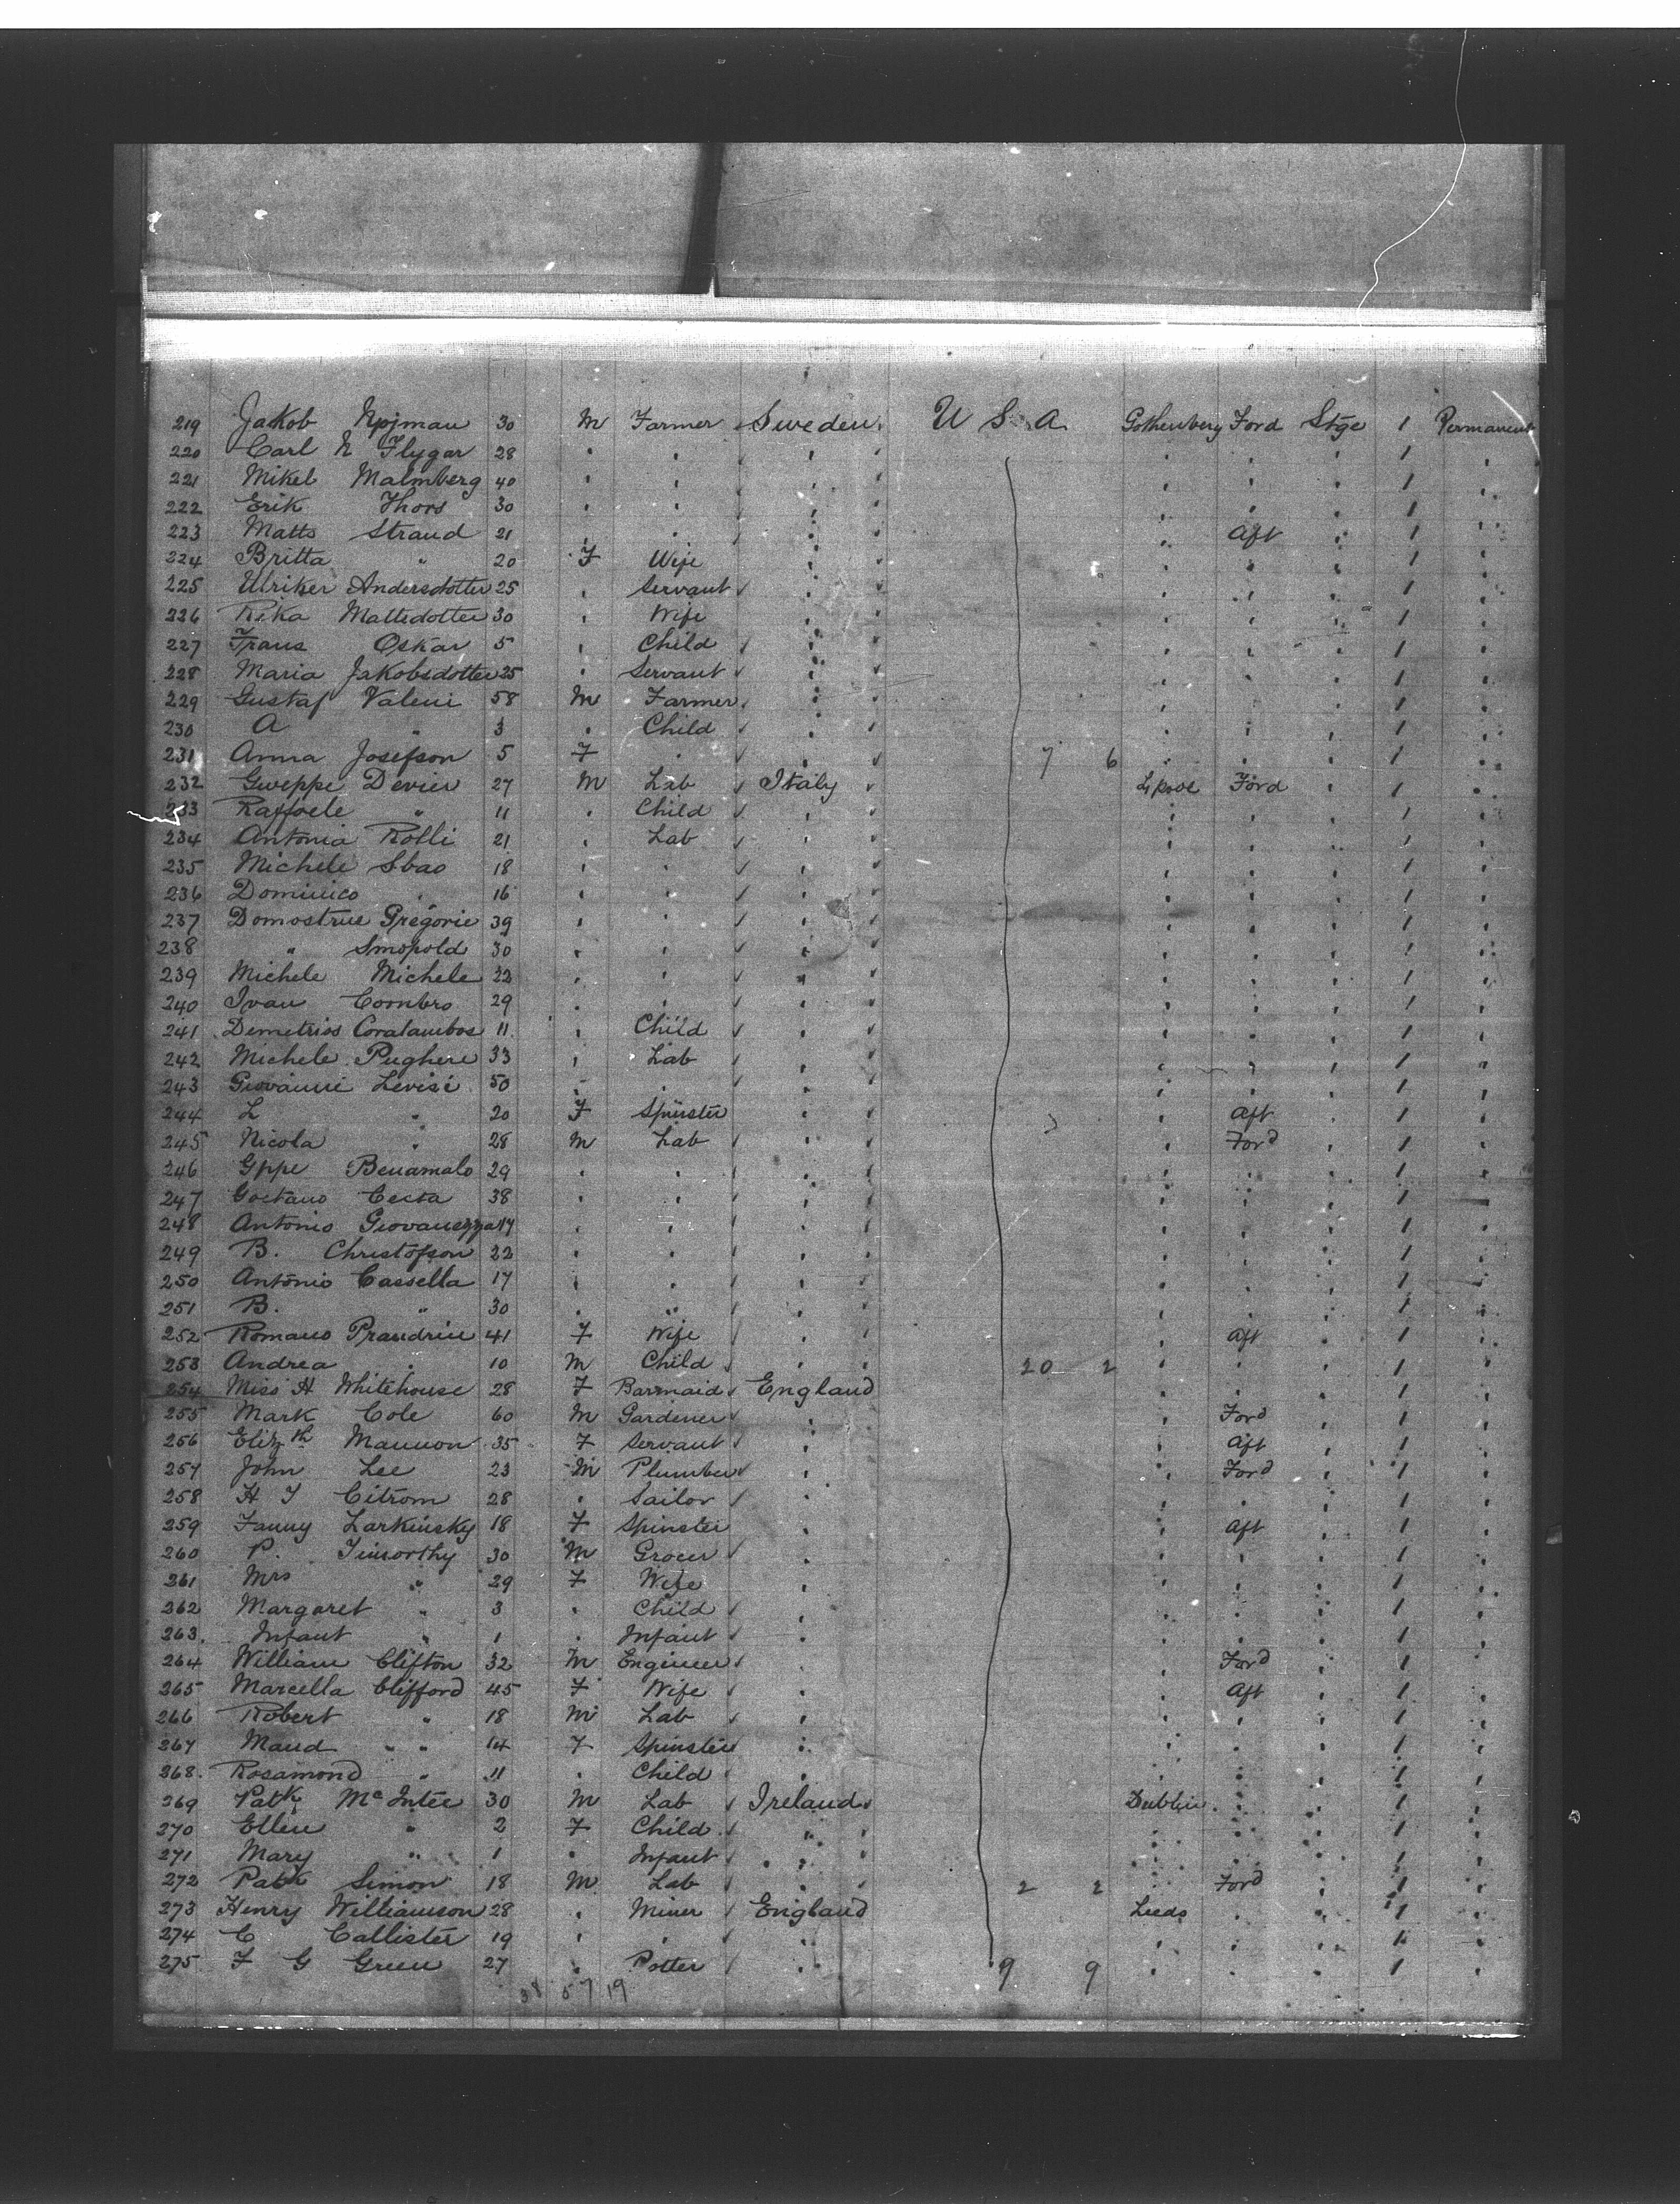 219 Jakob Npjman 30 M Farmer Sweden U S A Gothenburg Ford Stge 1 Permanent
220 Carl N Flygar 28 " " " " " " 1 "
221 Mikel Malmberg 40 " " " " " " 1 "
222 Erik Thors 30 " " " " " " 1 "
223 Matts Strand 21 " " " " Aft " 1 "
224 Britta " 20 F Wife " " " " 1 "
225 Ulriker Andersdotter 25 " Servant " " " " 1 "
226 Rika Mattsdotter 30 " Wife " " " " 1 "
227 Frans Oskar 5 " Child " " " " 1 "
228 Maria Jakobsdotter 25 " Servant " " " " 1 "
229 Gustaf Valeni 58 M Farmer " " " " 1 "
230 A " 3 " Child " " " " 1 "
231 Anna Josefson 5 F " " 7 6 " " " 1 "
232 Guseppe Devier 27 M Lab Italy L'pool Ford " 1 "
233 Raffaele " 11 " Child " " " " 1 "
234 Antonia Rolli 21 " Lab " " " " 1 "
235 Michele Sbao 18 " " " " " " 1 "
236 Dominico " 16 " " " " " " 1 "
237 Domostrue Gregorie 39 " " " " " " 1 "
238 " Smopold 30 " " " " " " 1 "
239 Michele Michele 22 " " " " " " 1 "
240 Ivan Coombro 29 " " " " " " 1 "
241 Demetriss Coralambos 11 " Child " " " " 1 "
242 Michele Pughere 33 " Lab " " " " 1 "
243 Giovanni Levisi 50 " " " " " " 1 "
244 L " 20 F Spinster " " Aft " 1 "
245 Nicola " 28 M Lab " " Ford " 1 "
246 Gppe Benamalo 29 " " " " " " 1 "
247 Gaetano Cecsa 38 " " " " " " 1 "
248 Antonio Giovanezza 17 " " " " " " 1 "
249 B. Christofson 22 " " " " " " 1 "
250 Antonio Cassella 17 " " " " " " 1 "
251 B. " 30 " " " " " " 1 "
252 Romano Prandrin 41 F Wife " " Aft " 1 "
253 Andrea " 10 M Child " 20 2 " " " 1 "
254 Miss H Whitehouse 28 F Barmaid England " " " 1 "
255 Mark Cole 60 M Gardener " " Ford " 1 "
256 Elizth Mannon 35 F Servant " " Aft " 1 "
257 John Lee 23 M Plumber " " Ford " 1 "
258 H J Citrom 28 " Sailor " " " " 1 "
259 Fanny Larkinsky 18 F Spinster " " Aft " 1 "
260 P. Timorthy 30 M Grocer " " " " 1 "
261 Mrs " 29 F Wife " " " " 1 "
262 Margaret " 3 " Child " " " " 1 "
263 Infant " 1 " Infant " " " " 1 "
264 William Clifton 32 M Engineer " " Ford " 1 "
265 Marcella Clifford 45 F Wife " " Aft " 1 "
266 Robert " 18 M Lab " " " " 1 "
267 Maud " 14 F Spinster " " " " 1 "
268 Rosamond " 11 " Child " " " " 1 "
269 Patk McIntee 30 M Lab Ireland Dublin " " 1 "
270 Ellen " 2 F Child " " " " 1 "
271 Mary " 1 " Infant " " " " 1 "
272 Patk Simon 18 M Lab " 2 2 " Ford " 1 "
273 Henry Williamson 28 " Miner England Leeds " " 1 "
274 C Callister 19 " " " " " " 1 "
275 F G Green 27 " Potter " 9 9 " " " 1 "
38 57 19